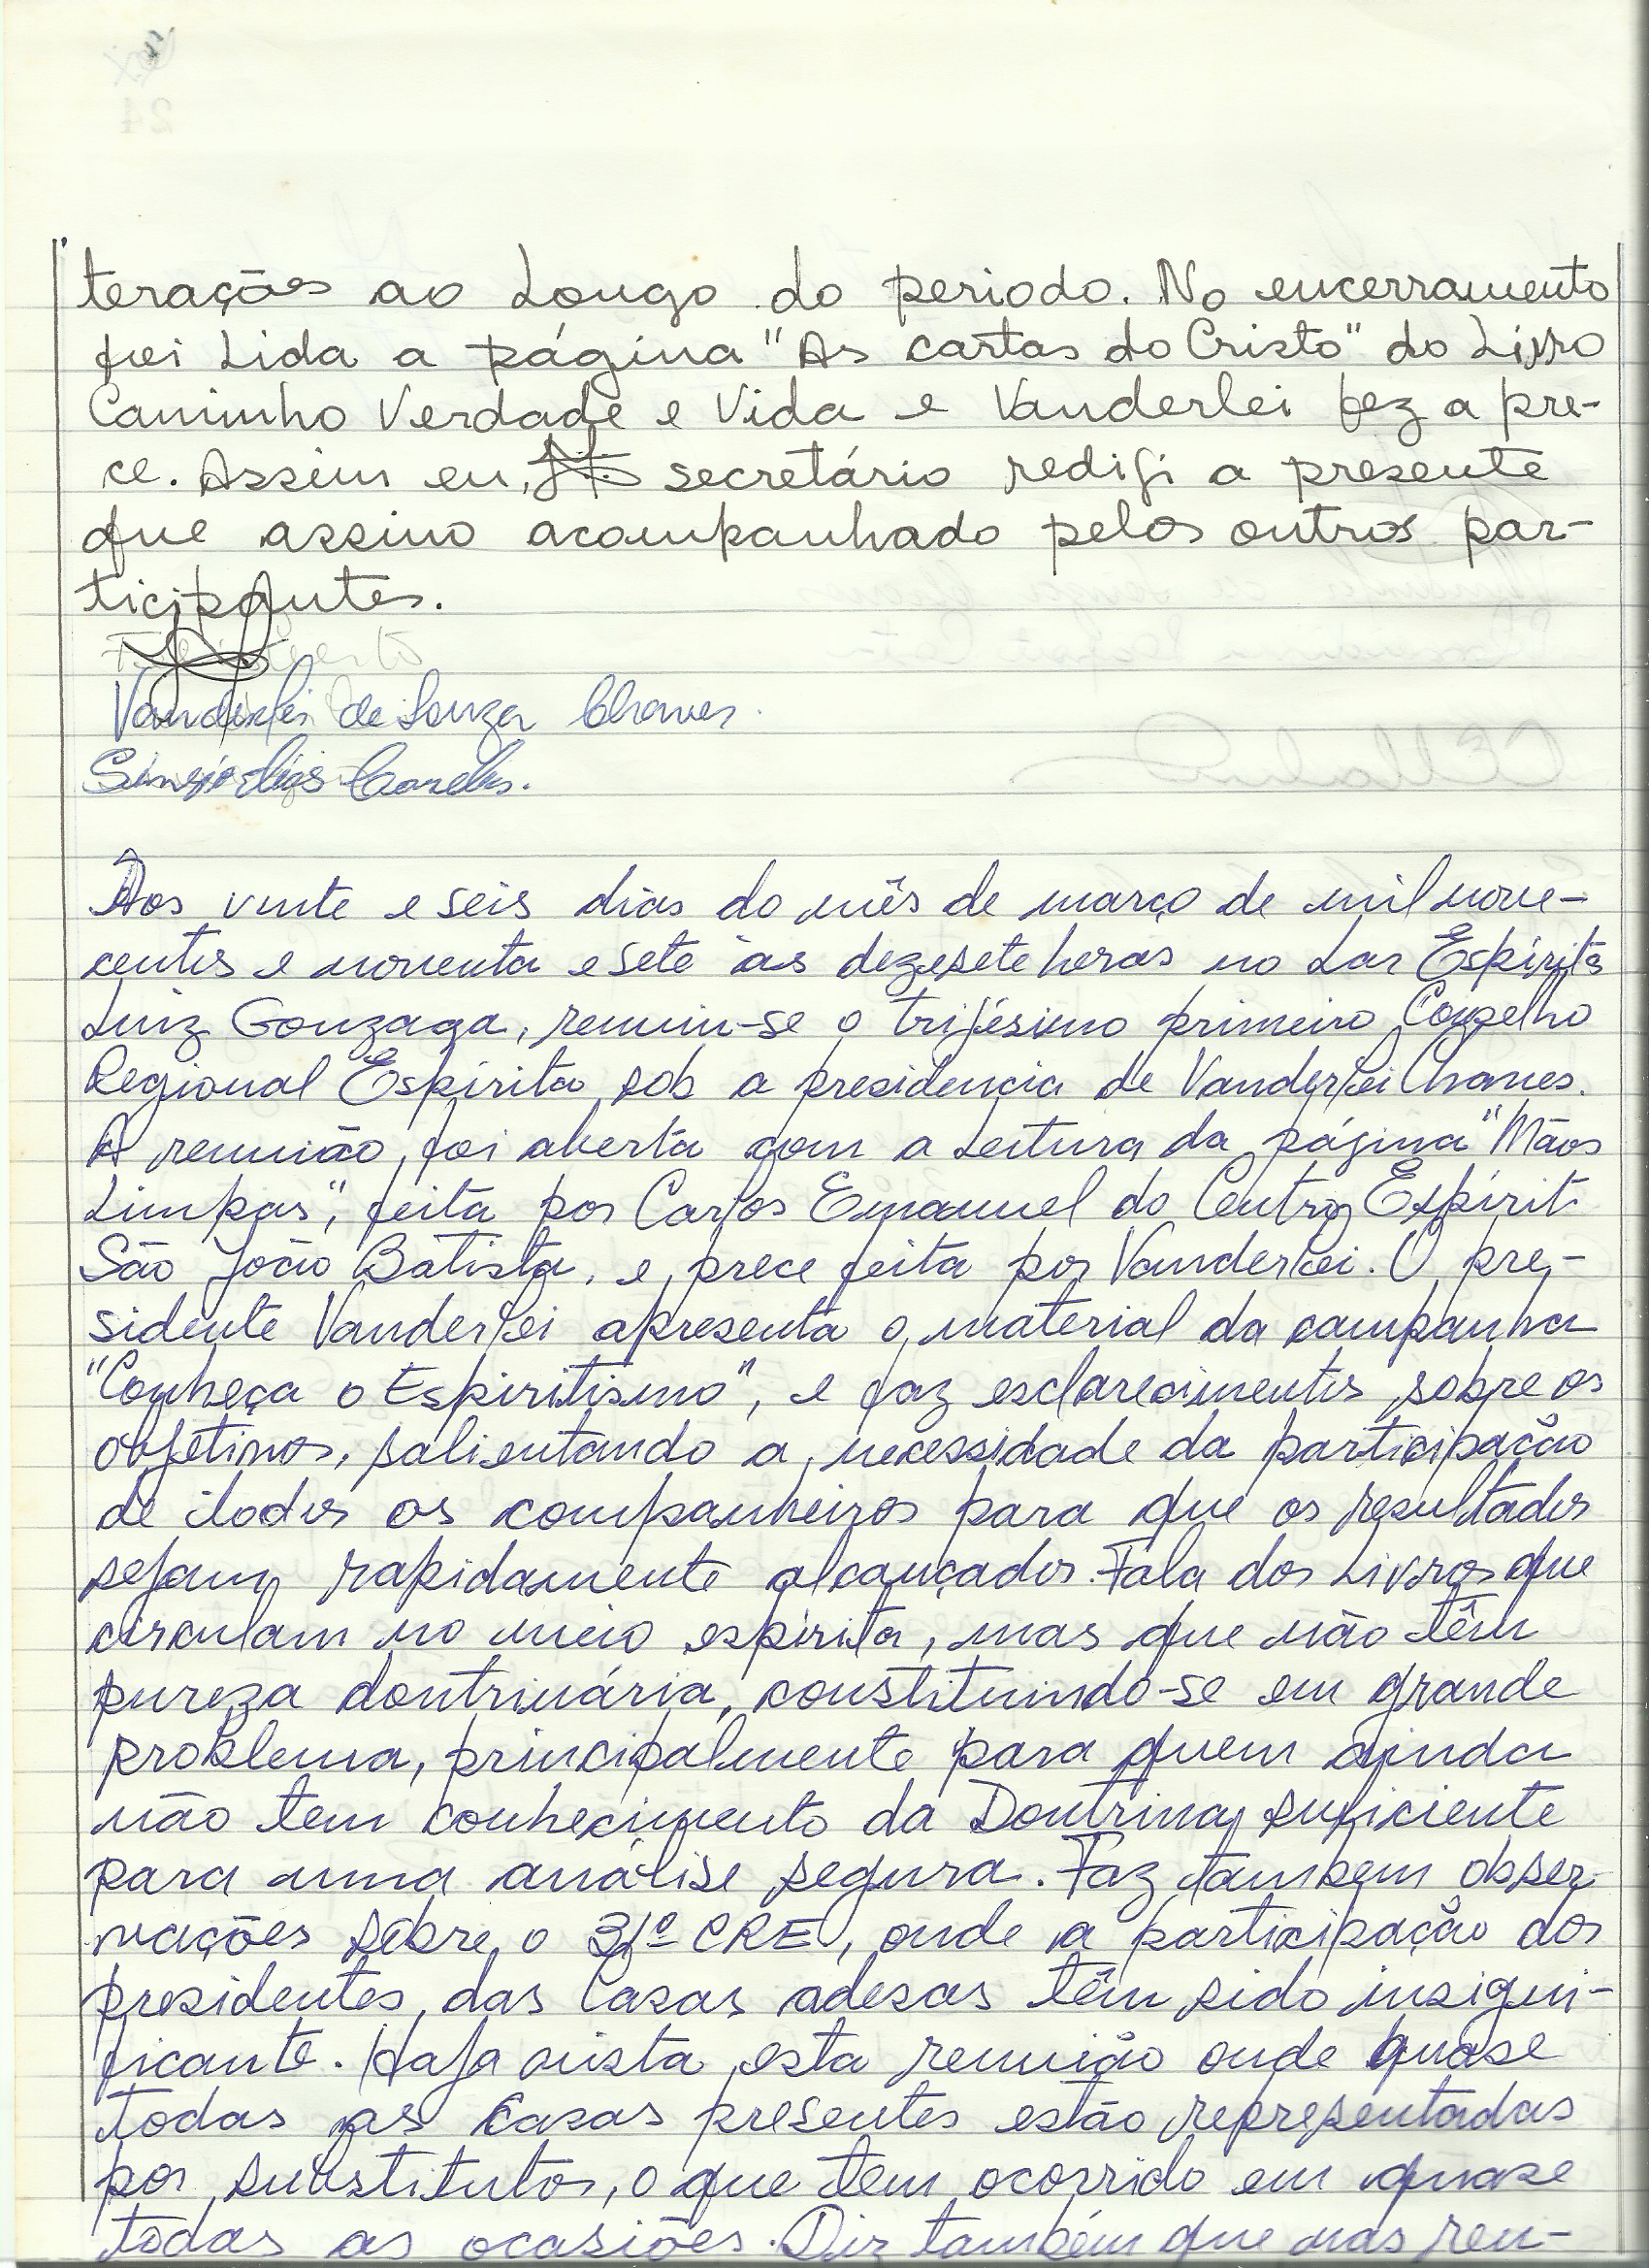 terações ao Longo do periodo. No encerramento
foi Lida a página "As cartas do Cristo" do Livro
Caminho Verdade e Vida e Vanderlei fez a pre-
ce. Assim eu, secretário redigi a presente
que assino acompanhado pelos outros par-
ticipantes.
Vanderlei de Souza Chaves.
Aos vinte e seis dias do mês de março de mil nove-
centos e noventa e sete às dezesete horas no Lar Espírita
Luiz Gonzaga, reuniu-se o trijésimo primeiro Conselho
Regional Espírita sob a presidencia de Vanderlei Chaves.
A reunião foi aberta com a Leitura da página "Mãos
Limpas", feita por Carlos Emanuel do Centro Espírit
São João Batista, e prece feita por Vanderlei. O pre-
sidente Vanderlei apresenta o material da campanha
"Conheça o Espiritismo", e faz esclarecimentos sobre os
objetivos, salientando a necessidade da participação
de todos os companheiros para que os resultados
sejam rapidamente alcançados. Fala dos Livros que
circulam no meio espírita, mas que não têm
pureza doutrinária, constituindo-se em grande
problema, principalmente para quem ainda
não tem conhecimento da Doutrina suficiente
para uma análise segura. Faz tambem obser-
vações sobre o 31º CRE, onde a participação dos
presidentes das Casas adesas têm sido insigni-
ficante. Haja vista esta reunião onde quase
todas as Casas presentes estão representadas
por substitutos, o que tem ocorrido em quase
todas as ocasiões. Diz também que nas reu-